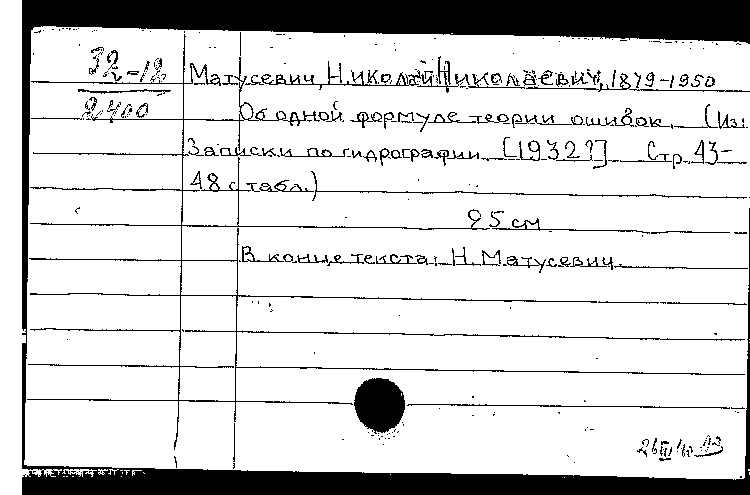 32-12
2400
Матусевич, Николай Николаевич, 1879-1950
Об одной формуле теории ошибок. (Из:
Записки по гидрографии. [1932?] Стр. 43-
48 с табл.)
25 см.
В конце текста: Н. Матусевич.